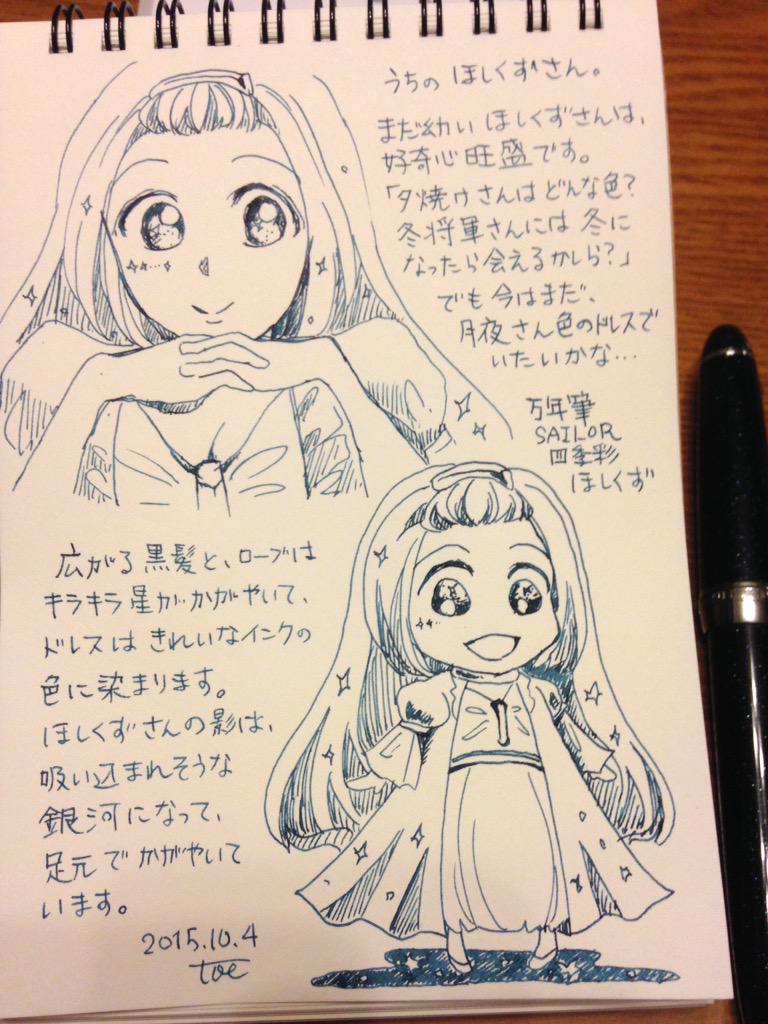 うちの ほしくずさん。
まだ幼い ほしくずさんは、
好奇心旺盛です。
「夕焼けさんは どんな色?
冬将軍さんには 冬に
なったら会えるかしら?」
でも 今はまだ、
月夜さん色のドレスで
いたいかな…
万年筆
SAILOR
四季彩
ほしくず
広がる 黒髪と、ローブは
キラキラ 星が かがやいて、
ドレスは きれいなインクの
色に染まります。
ほしくずさんの影は、
吸い込まれそうな
銀河になって、
足元で かがやいて
います。
2015.10.4
toe